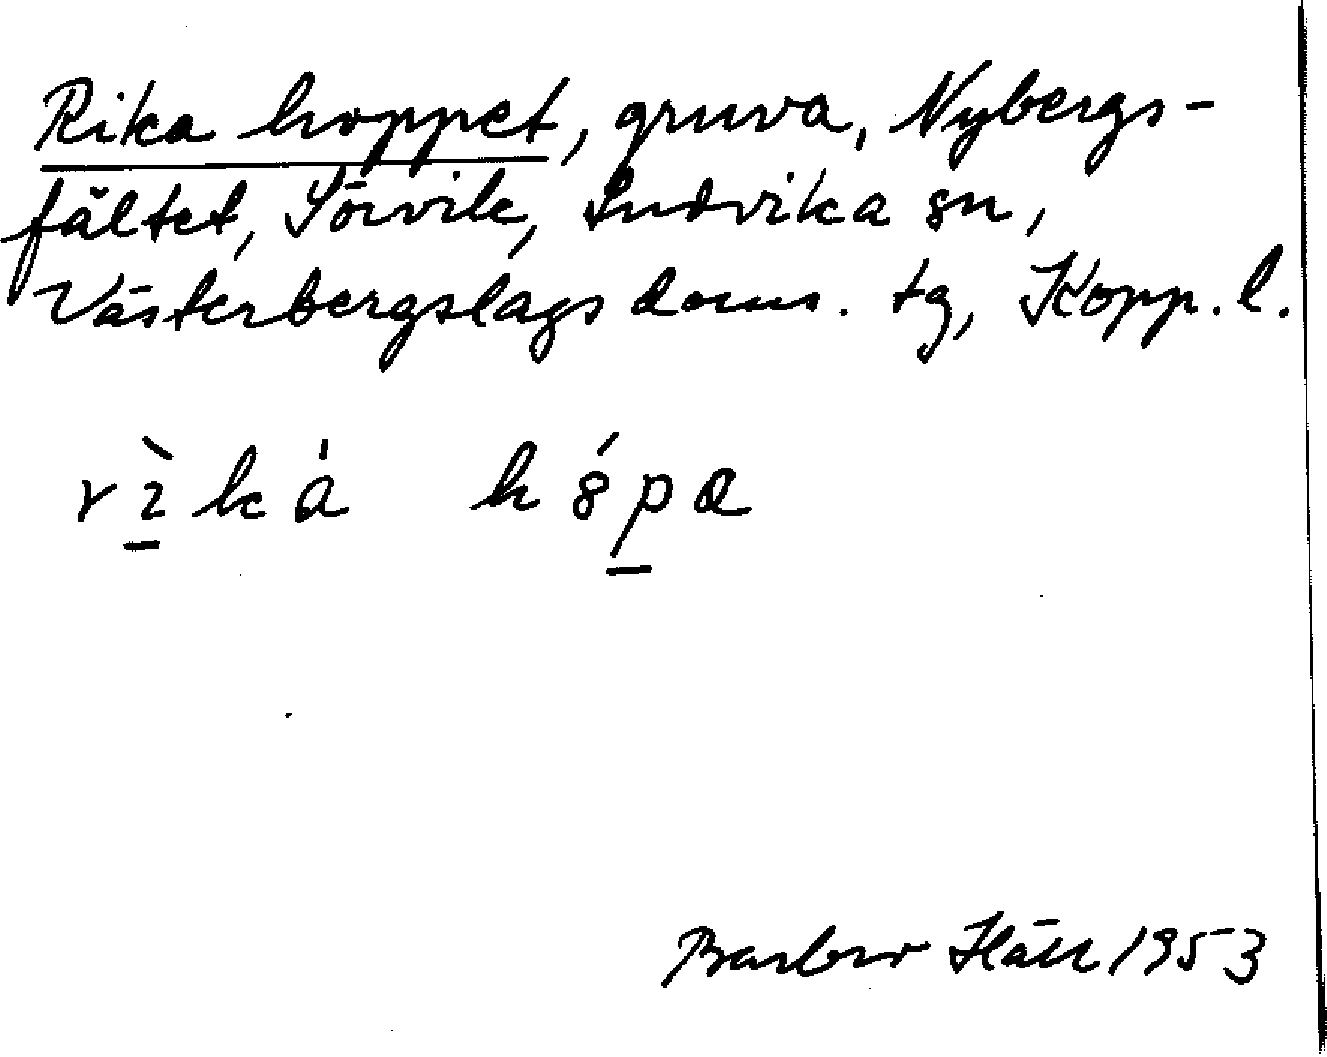 Rika hoppet, gruva, Nybergs-
fältet, Sörvik, Ludvika sn,
Västerbergslags doms. tg, Kopp. l.
Barbro 1953